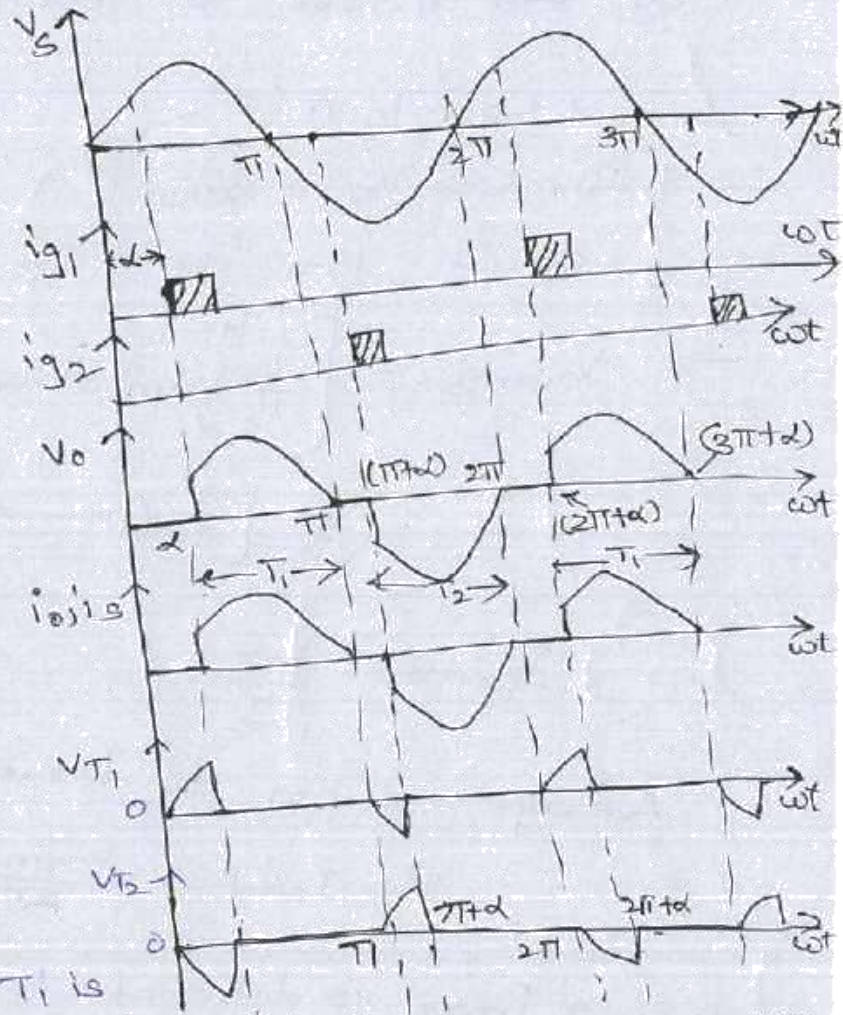 Vs
π 2π 3π ωt
ig1 α ωt
ig2 ωt
Vo α π (π+α) 2π (2π+α) (3π+α) ωt
T1 T1
io, is ωt
VT1 0 ωt
VT2 0 π π+α 2π 2π+α ωt
T1 is